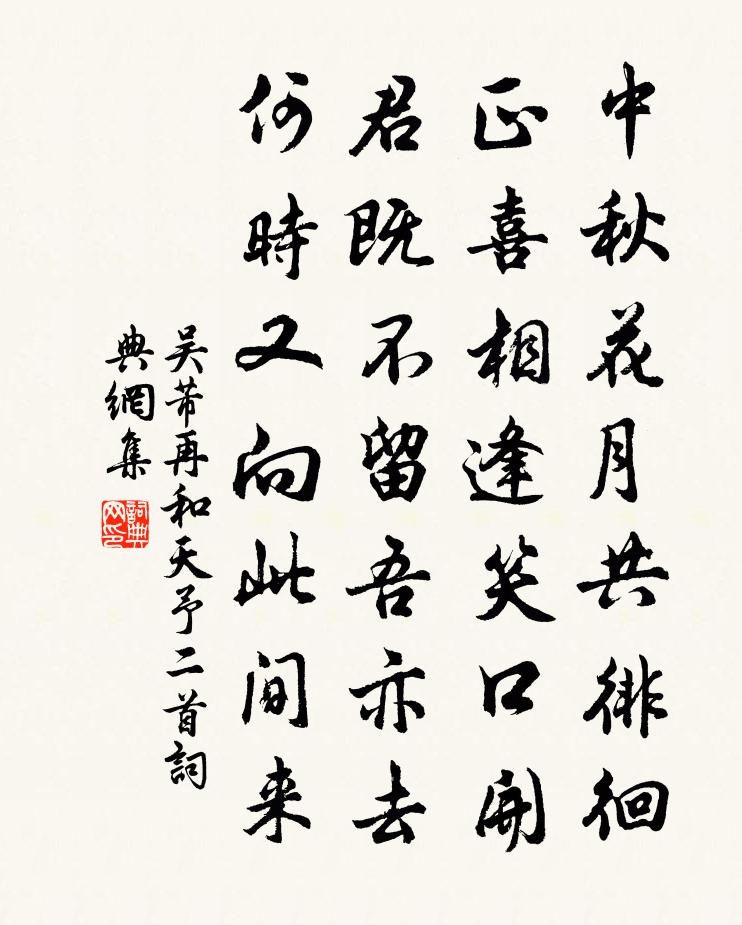 中秋花月共徘徊
正喜相逢笑口開
君既不留吾亦去
何時又向此间来
吴芾再和天予二首詞
典網集
詞典
网印